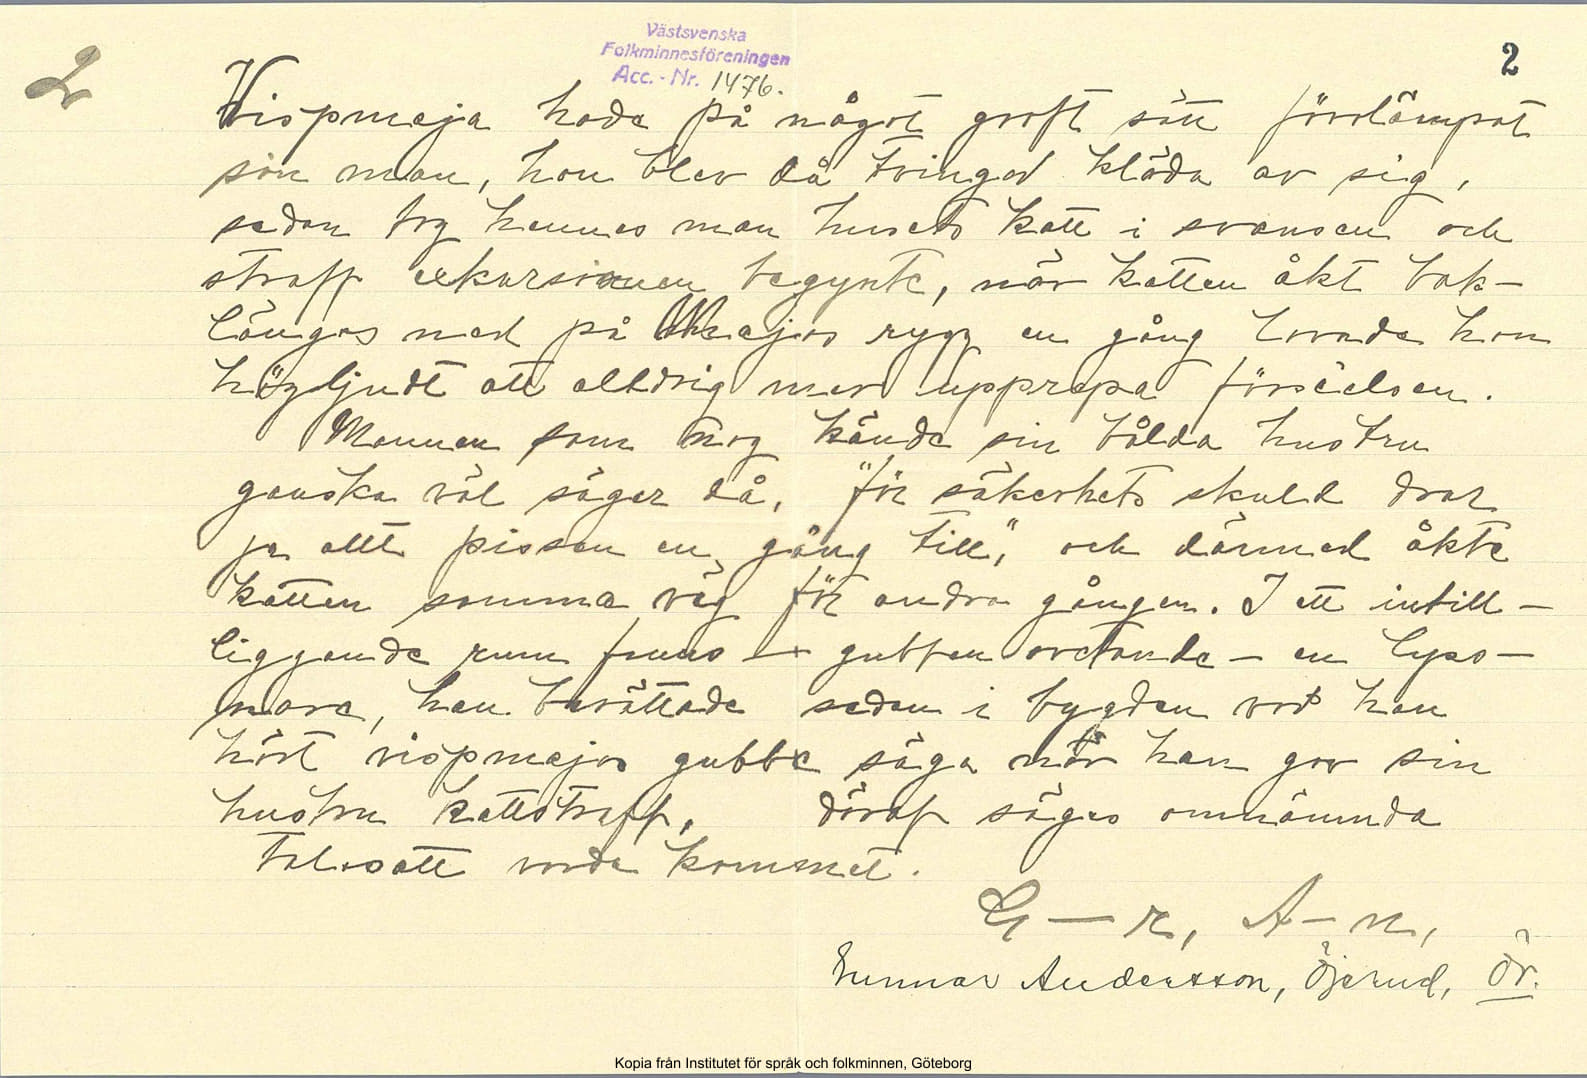 Västsvenska
Folkminnesföreningen
Acc.-Nr. 1476.
2
2
Vispmaja hade på något groft sätt förolämpat
sin man, hon blev då tvingad kläda av sig,
sedan tog hennes man husets katt i svansen och
straff exkursionen begynte, när katten åkt bak-
länges ned på Majas rygg en gång lovade hon
högljudt att alldrig mer upprepa förseelsen.
Mannen som nog kände sin bålda hustru
ganska väl säger då, "för säkerhets skuld drar
ja allt pissan en gång till", och därmed åkte
katten samma väg för andra gången. I ett intill-
liggande rum fanns - gubben ovetande - en lyss-
nare, han berättade sedan i bygden vad han
hört vispmajas gubbe säga när han gav sin
hustru kattstraff, däraf säges omnämnda
talesätt vorde kommet.
G-r, A-n,
Gunnar Andersson, Öjerud, Ör.
Kopia från Institutet för språk och folkminnen, Göteborg